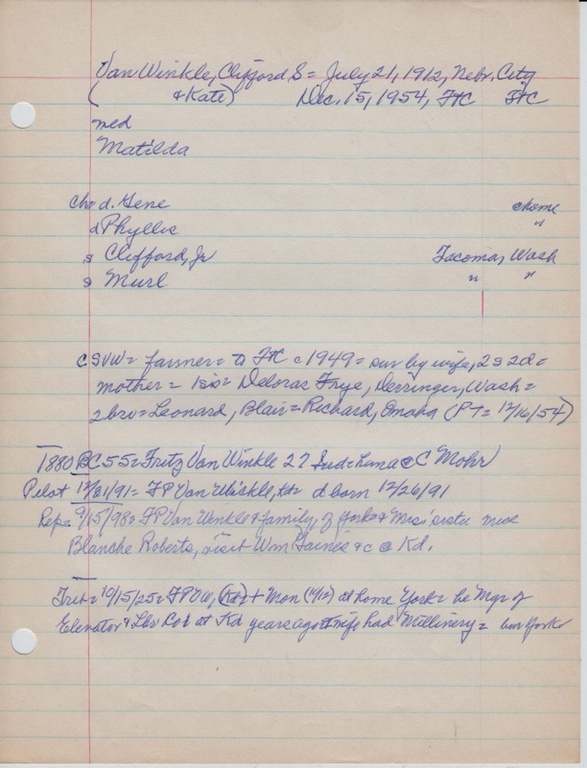 Van Winkle, Clifford S = July 21, 1912, Nebr. City
( & Kate) Dec. 15, 1954, FtC FtC
med
Matilda
Ch = d. Gene @home
d Phyllis "
s Clifford, Jr Tacoma, Wash
s Murl " "
CSVW = farmer = to FtC c 1949 = sur by wife, 2s 2d =
mother = 1 sis = Deloras Frye, Derringer, Wash =
2 bro = Leonard, Blair = Richard, Omaha (PT = 12/16/54)
1880 BC 55 = Fritz Van Winkle 27 C Mohr
Pilot 12/31/91 = FP Van Winkle, d born 12/26/91
Rep = 9/15/98 = FP Van Winkle & family, of York & Mrs' sister Miss
Blanche Roberts, visit Wm Gaines & c @ Kd.
Trib = 10/15/25 = FPVW, (Kd) + Mon at home York = he Mgr of
Elevator & Lbr Co at Kd years ago = wife had Millinery = York